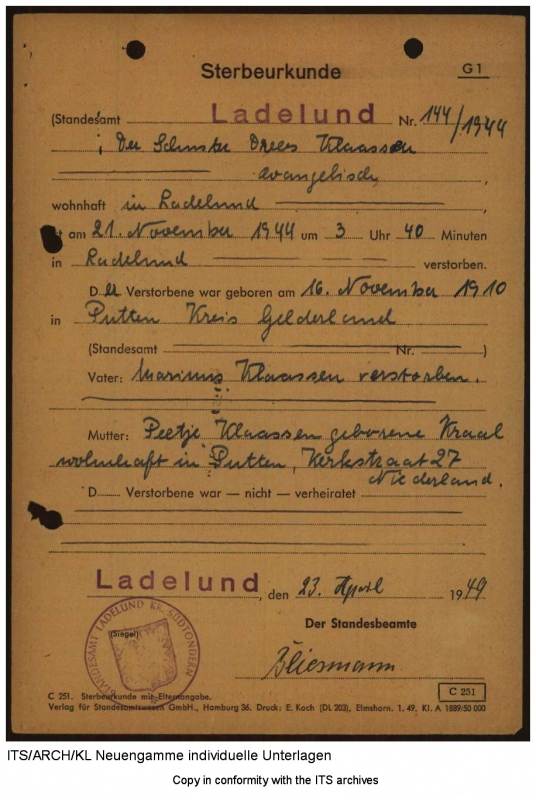 Sterbeurkunde
G 1
(Standesamt Ladelund Nr. 144/1944
Der Schuster Drees Klaassen
evangelisch,
wohnhaft in Ladelund,
am 21. November 1944 um 3 Uhr 40 Minuten
in Ladelund verstorben.
Der Verstorbene war geboren am 16. November 1910
in Putten Kreis Gelderland
(Standesamt Nr. )
Vater: Marinus Klaassen verstorben.
Mutter: Peetje Klaassen geborene Kraal
wohnhaft in Putten, Kerkstraat 27
Niederland.
D Verstorbene war — nicht — verheiratet
Ladelund, den 23. April 1949
STANDESAMT LADELUND KR. SÜDTONDERN
(Siegel)
Der Standesbeamte
C 251. Sterbeurkunde mit Elternangabe.
C 251
Verlag für Standesamtswesen GmbH., Hamburg 36. Druck: E. Koch (DL 203), Elmshorn. 1. 49. Kl. A 1889/50 000
ITS/ARCH/KL Neuengamme individuelle Unterlagen
Copy in conformity with the ITS archives